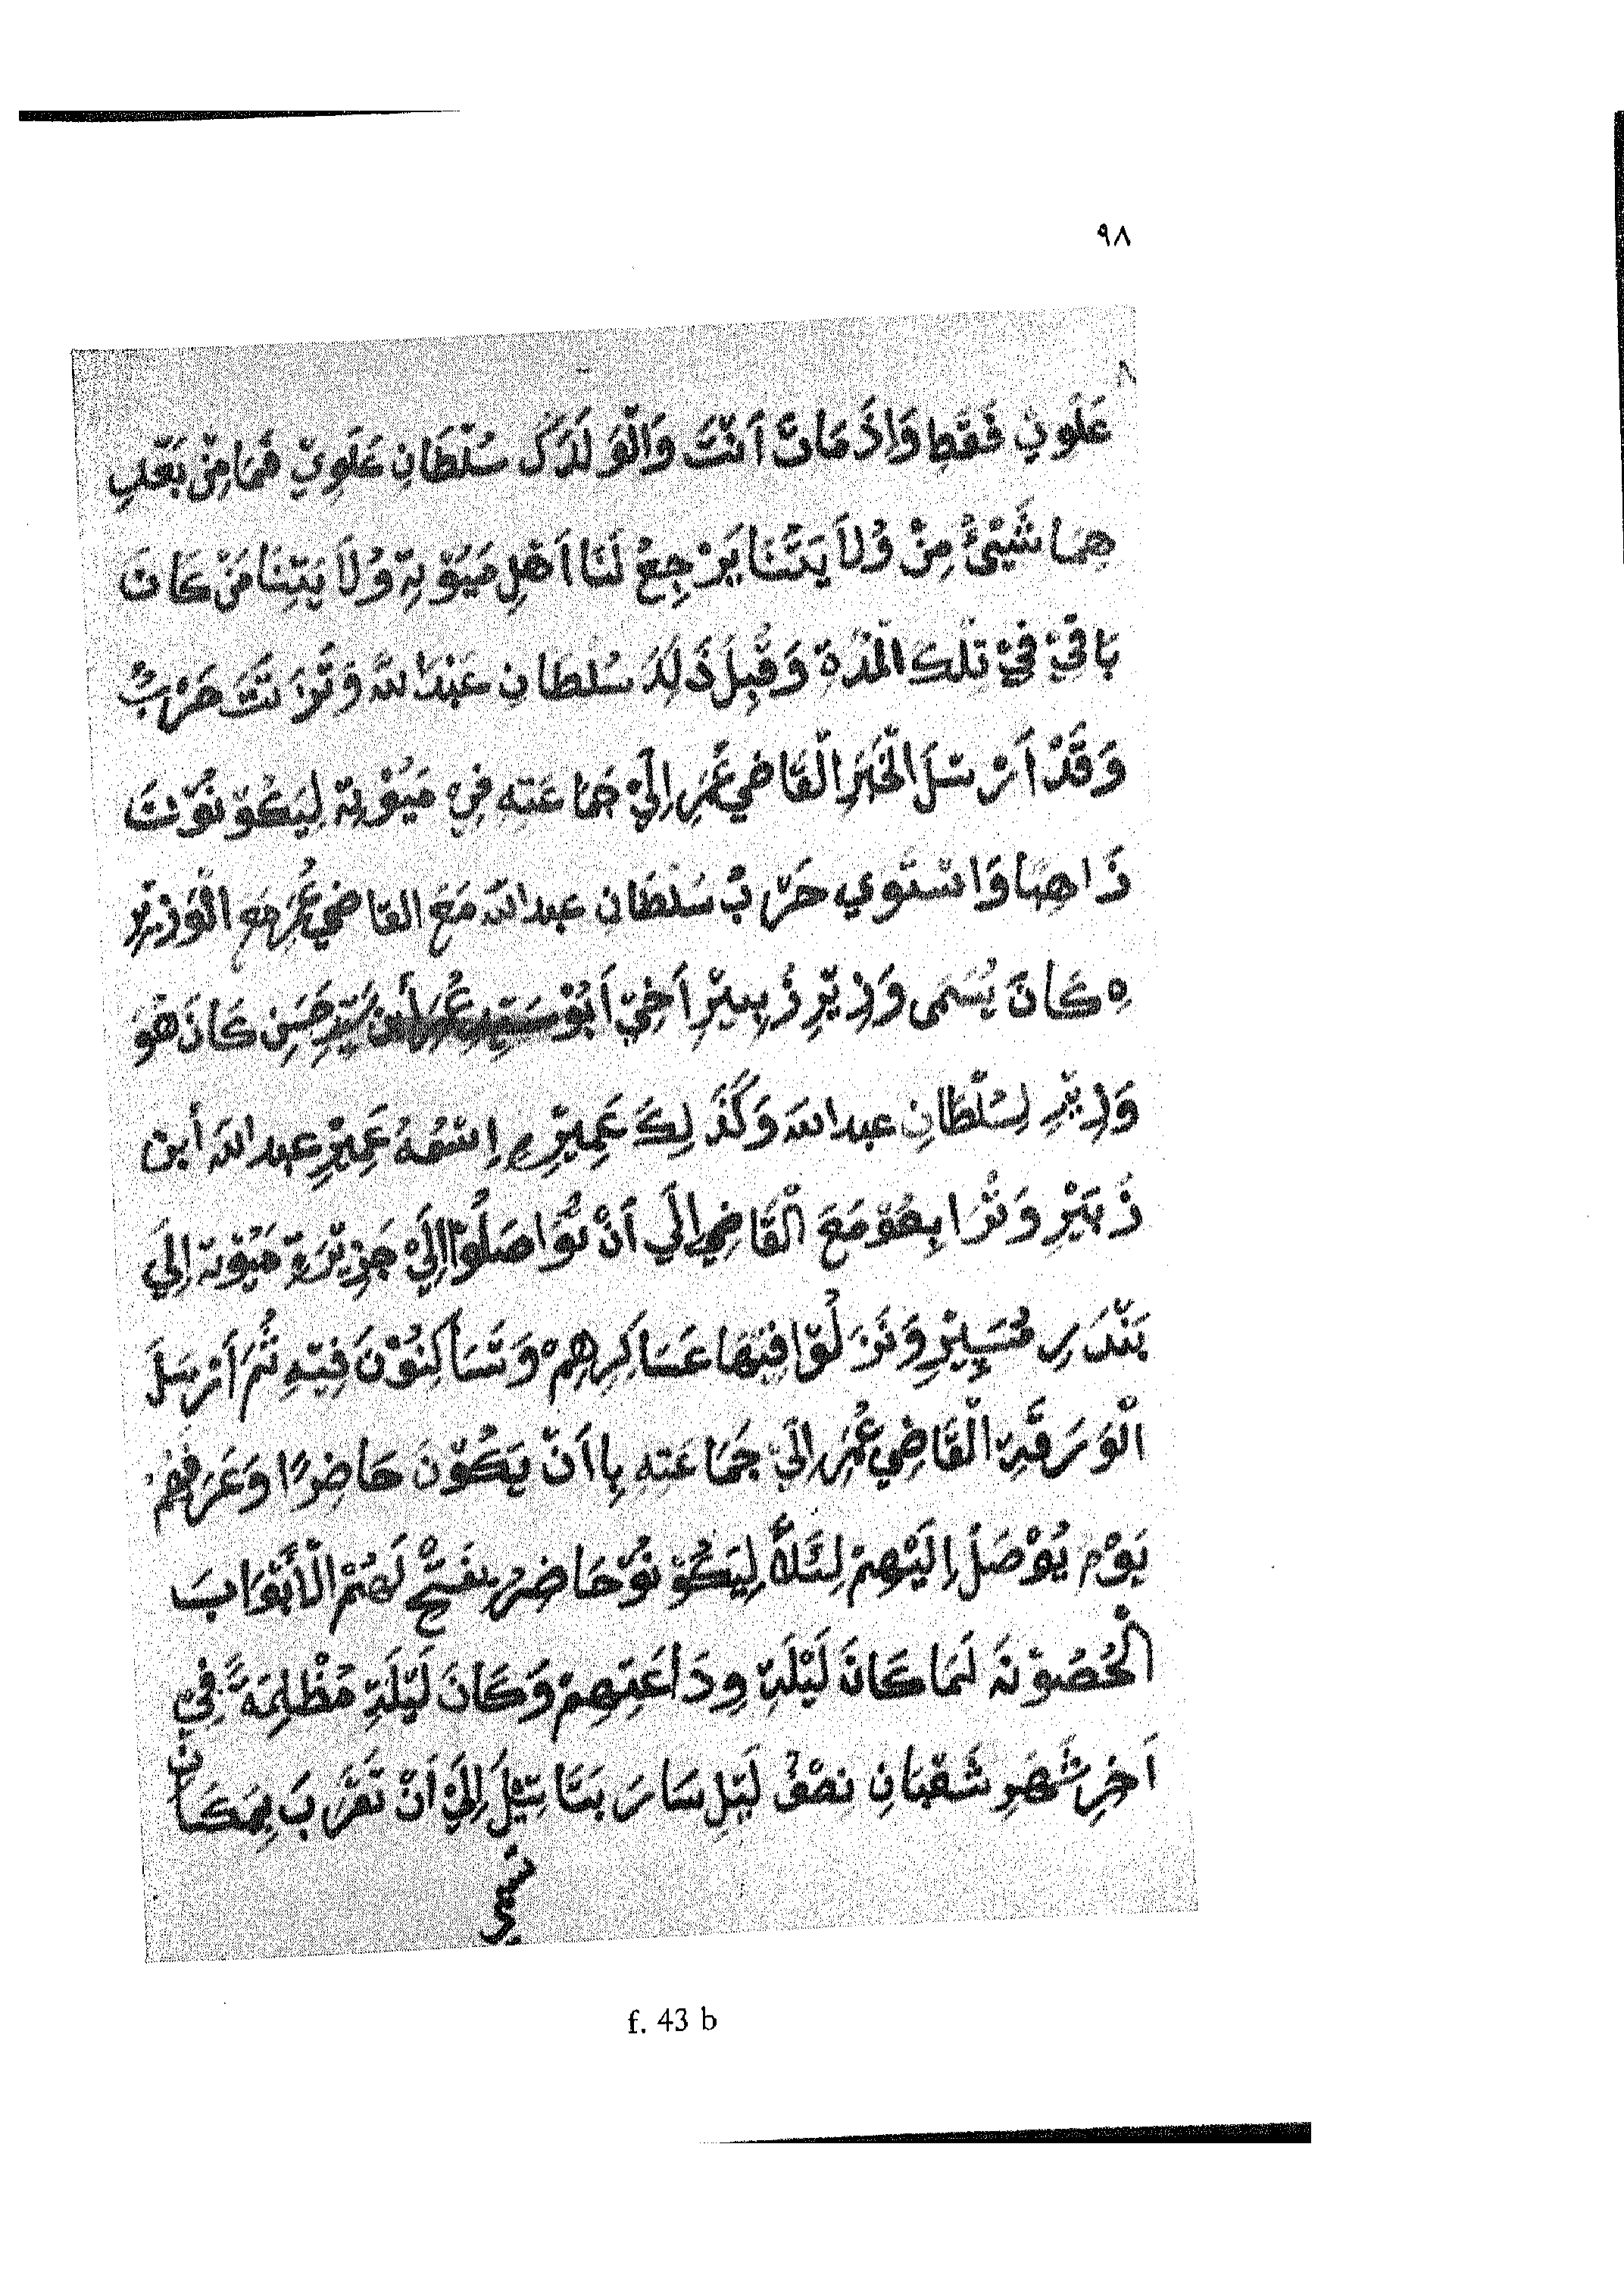 ٩٨
عَلَوِيْ فَقَطِ وَاِذَ مَاتَ اَنْتَ وَالْوَلَدَكَ سُلْطَانِ عَلَوِيْ فَمَا مِنْ بَعْدِ
هِمَا شَيْئُ مِنْ وُلاَ يَتُنَا يَرْجِعُ لَنَا اَهْلِ مَيُوْتِةِ وُلاَ يَتِنَا مَنْ كَانَ
بَاقِيْ فِيْ تِلْكَ الْمُدَّةِ وَقَبِلَ ذَلِكَ سُلْطَانِ عَبْدَاللهَ وَتَرَتَّ حَرْبُ
وَقَدْ اَرْسَلَ الْخَبَرِ الْقَاضِي عُمَرِ اِلَيْ جَمَاعَتِهِ فِيْ مَيُوْتِةِ لِيَكُوْنُوْنَ
ذَاهِبَا وَاسْتَوي حَرْبُ سُلْطَانِ عبدالله مَعَ القاضِي عُمَرِ مَعِ الْوَزِيْرِ
هِ كَانَ يُسَمى وَزِيْرِ زُبِيْرِ اَخِيْ اَبُوْ سَيِّدِ عُمَرِ اَبِن سَيِّدِ حَسَنِ كَانَ هُوَ
وَزِيْرِ لِسُلْطَانِ عبدالله وَكَذَلِكَ عَمِيْرِهِ اِسْمُهُ عَمِيْرِ عبدالله اَبن
زُبَيْرِ وَتُرَابِعُوْ مَعَ الْقَاضِي اِلَي اَنْ تُوَاصَلُوْا اِلَيْ جَزِيْرَةِ مَيُوْتَة اِلَي
بَنْدَرِ مُسَيِيْرِ وَنَزَلُوْا فِيْهَا عَسَاكِرِهِمْ وَتَسَاكِنُوْنَ فِيْهِ ثُمَ اَرْسَلَ
الْوَرَقَةِ الْقَاضِي عُمَرِ اِلَيْ جَمَاعَتِهِ بِااَنْ يَكُوْنَ حَاضِرًا وَعَرَفَهُمْ
يَوْم يُوْصَلْ اِلَيْهِمْ لِئَلاَّ لِيَكُوْنُوْ حَاضِرْ بِفَتْحِ لَهُمْ الْاَبْوَابَ
الْحُصُوْنَه لَمَا كَانَ لَيْلَةِ وِدَاعَتِهِمْ وَكَانَ لَيْلَةِ مُظْلِمَةً فِيْ
اَخِرِ شَهْرِ شَعْبَانِ نِصْفُ لَيْلِ سَارَ بَتَاتِيْلَ اِلَيْ اَنْ تَقَرَّبَ بِمَكَانْ
f. 43 b